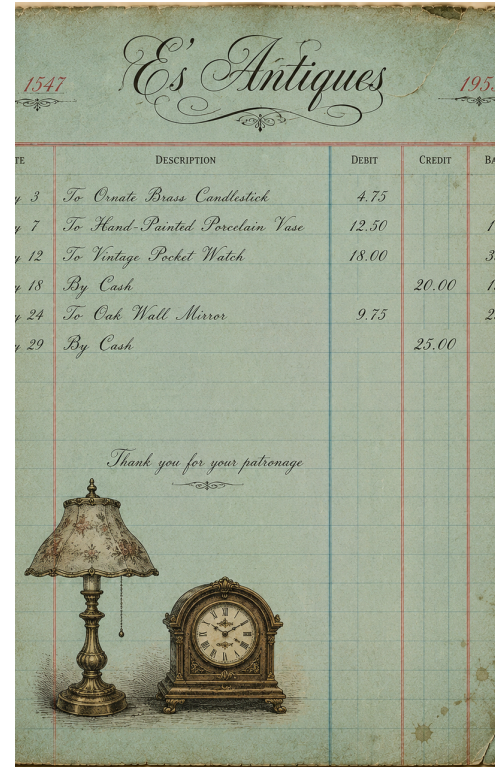 E's Antiques
1547 195
TE DESCRIPTION DEBIT CREDIT BA
y 3 To Ornate Brass Candlestick 4.75
y 7 To Hand-Painted Porcelain Vase 12.50 1
y 12 To Vintage Pocket Watch 18.00 3
y 18 By Cash 20.00 1
y 24 To Oak Wall Mirror 9.75 2
y 29 By Cash 25.00
Thank you for your patronage